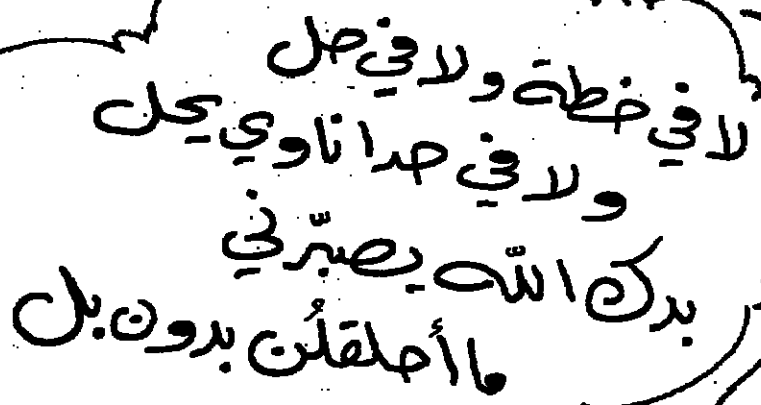 لا في خطة ولا في حل
ولا في حدا ناوي يحل
بدك الله يصبّرني
ما أحلقلُن بدون بل